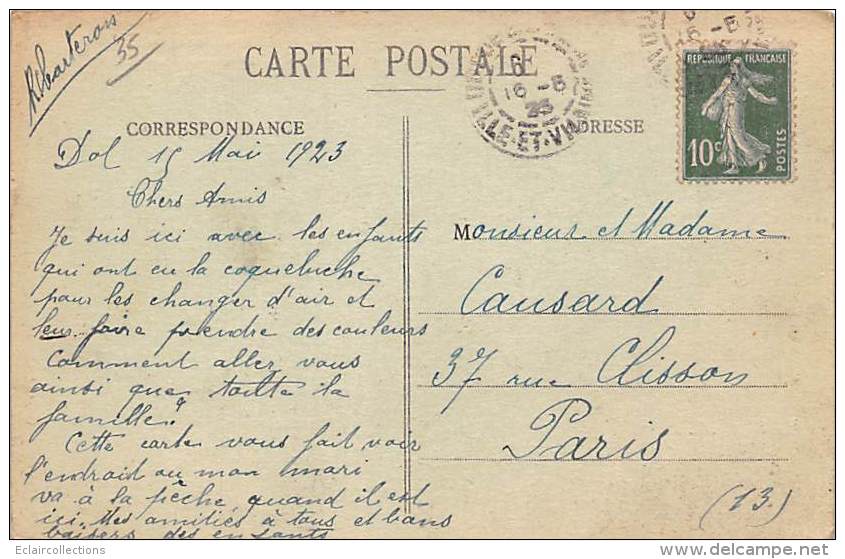 R. Charteron
35
CARTE POSTALE
CORRESPONDANCE
ADRESSE
6
16-5
23
ILLE-ET-VILAINE
16-5
REPUBLIQUE FRANÇAISE
10c
POSTES
Dol 15 Mai 1923
Chers Amis
Je suis ici avec les enfants
qui ont eu la coqueluche
pour les changer d'air et
leur faire prendre des couleurs
Comment aller vous
ainsi que toutte la
famille?
Cette carte vous fait voir
l'endroit ou mon mari
va à la pêche quand il est
ici. Mes amitiés à tous et bons
baisers des enfants
Monsieur et Madame
Causard
37 rue Clisson
Paris
(13.)
Eclaircollections
www.delcampe.net